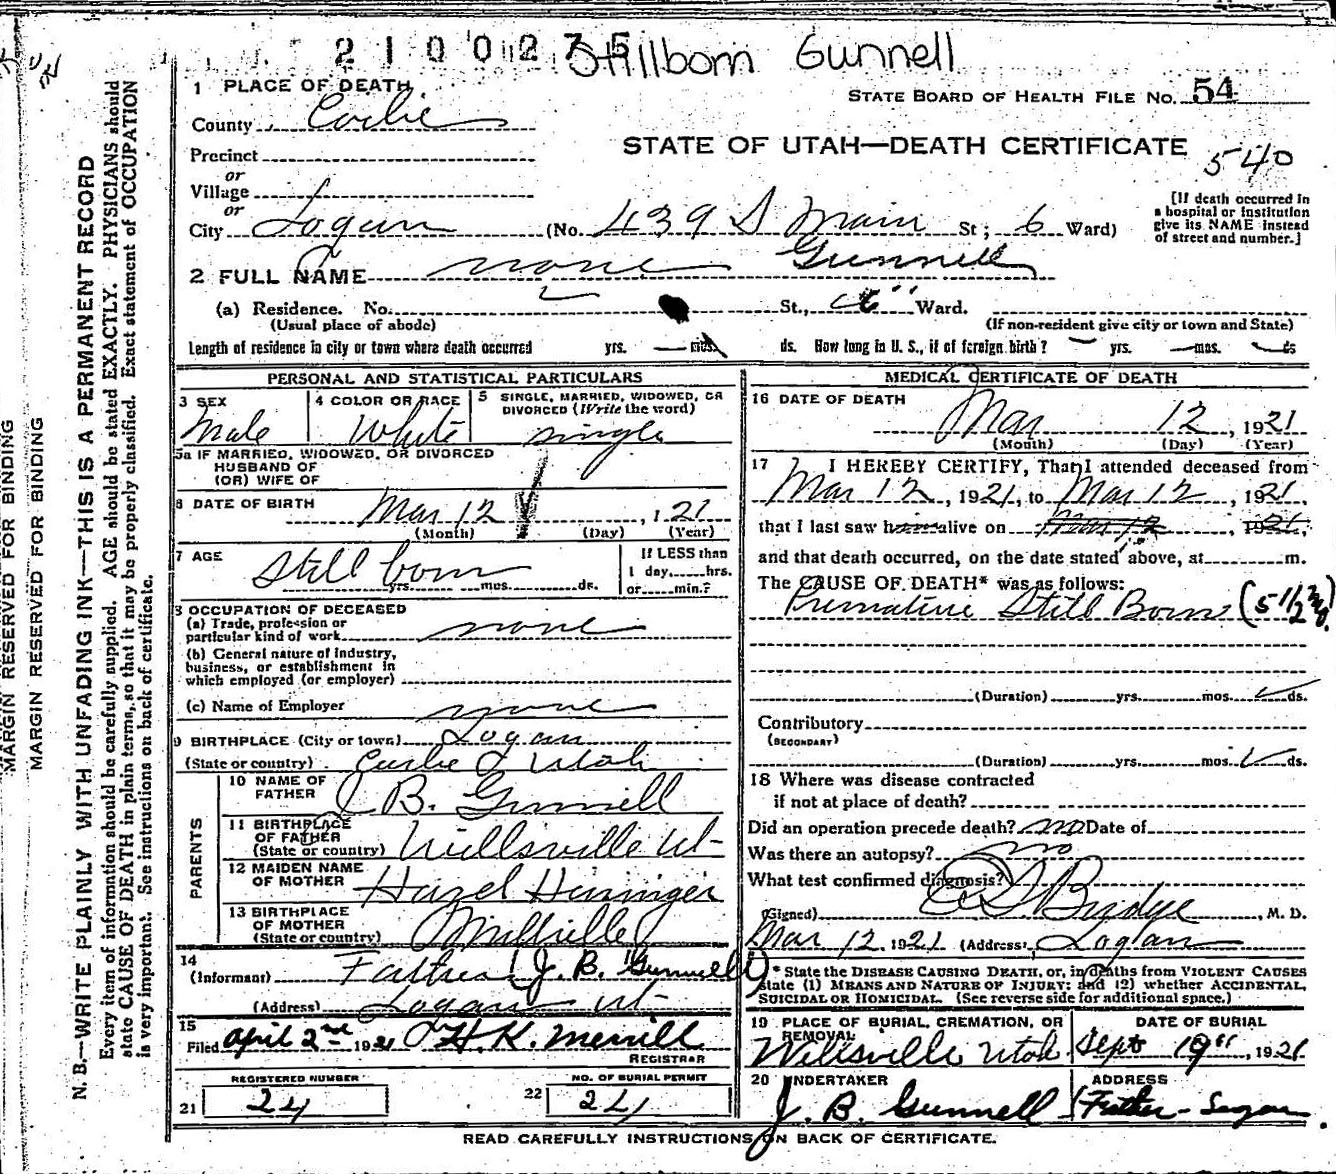 2100275 Stillborn Gunnell
1 PLACE OF DEATH
STATE BOARD OF HEALTH FILE NO. 54
County Cache
STATE OF UTAH—DEATH CERTIFICATE
540
Precinct
or
Village
or
City Logan (No. 439 S Main St; 6 Ward)
[If death occurred in
a hospital or institution
give its NAME instead
of street and number.]
2 FULL NAME none Gunnell
(a) Residence. No. St., 6" Ward.
(Usual place of abode) (If non-resident give city or town and State)
Length of residence in city or town where death occurred yrs. mos. ds. How long in U. S., if of foreign birth? yrs. mos. ds
PERSONAL AND STATISTICAL PARTICULARS
3 SEX
Male
4 COLOR OR RACE
White
5 SINGLE, MARRIED, WIDOWED, OR
DIVORCED (Write the word)
single
5a IF MARRIED, WIDOWED, OR DIVORCED
HUSBAND OF
(OR) WIFE OF
6 DATE OF BIRTH
Mar 12, 1921
(Month) (Day) (Year)
7 AGE
Still born
yrs. mos. ds.
If LESS than
1 day hrs.
or min.?
8 OCCUPATION OF DECEASED
(a) Trade, profession or
particular kind of work none
(b) General nature of industry,
business, or establishment in
which employed (or employer)
(c) Name of Employer none
9 BIRTHPLACE (City or town) Logan
(State or country) Cache Utah
PARENTS
10 NAME OF
FATHER J B. Gunnell
11 BIRTHPLACE
OF FATHER
(State or country) Wellsville Ut
12 MAIDEN NAME
OF MOTHER Hazel
13 BIRTHPLACE
OF MOTHER
(State or country) Millville
14
(Informant) Father (J. B. Gunnell)
(Address) Logan Ut
15
Filed April 2nd 1921 H. K. Merrill
REGISTRAR
REGISTERED NUMBER
21 24
NO. OF BURIAL PERMIT
22 24
MEDICAL CERTIFICATE OF DEATH
16 DATE OF DEATH
Mar 12, 1921
(Month) (Day) (Year)
17 I HEREBY CERTIFY, That I attended deceased from
Mar 12, 1921, to Mar 12, 1921,
that I last saw him alive on Mar 12 1921,
and that death occurred, on the date stated above, at m.
The CAUSE OF DEATH* was as follows:
Premature Still Born (5 1/2
(Duration) yrs. mos. ds.
Contributory
(SECONDARY)
(Duration) yrs. mos. ds.
18 Where was disease contracted
if not at place of death?
Did an operation precede death? no Date of
Was there an autopsy? no
What test confirmed diagnosis?
(Signed) , M. D.
Mar 12 1921 (Address) Logan
* State the DISEASE CAUSING DEATH, or, in deaths from VIOLENT CAUSES
state (1) MEANS AND NATURE OF INJURY; and (2) whether ACCIDENTAL,
SUICIDAL OR HOMICIDAL. (See reverse side for additional space.)
19 PLACE OF BURIAL, CREMATION, OR
REMOVAL
Wellsville Utah
DATE OF BURIAL
Sept 19", 1921
20 UNDERTAKER
J. B. Gunnell
ADDRESS
Father - Logan
READ CAREFULLY INSTRUCTIONS ON BACK OF CERTIFICATE.
MARGIN RESERVED FOR BINDING
MARGIN RESERVED FOR BINDING
N. B.—WRITE PLAINLY WITH UNFADING INK—THIS IS A PERMANENT RECORD
Every item of information should be carefully supplied. AGE should be stated EXACTLY. PHYSICIANS should
state CAUSE OF DEATH in plain terms, so that it may be properly classified. Exact statement of OCCUPATION
is very important. See instructions on back of certificate.